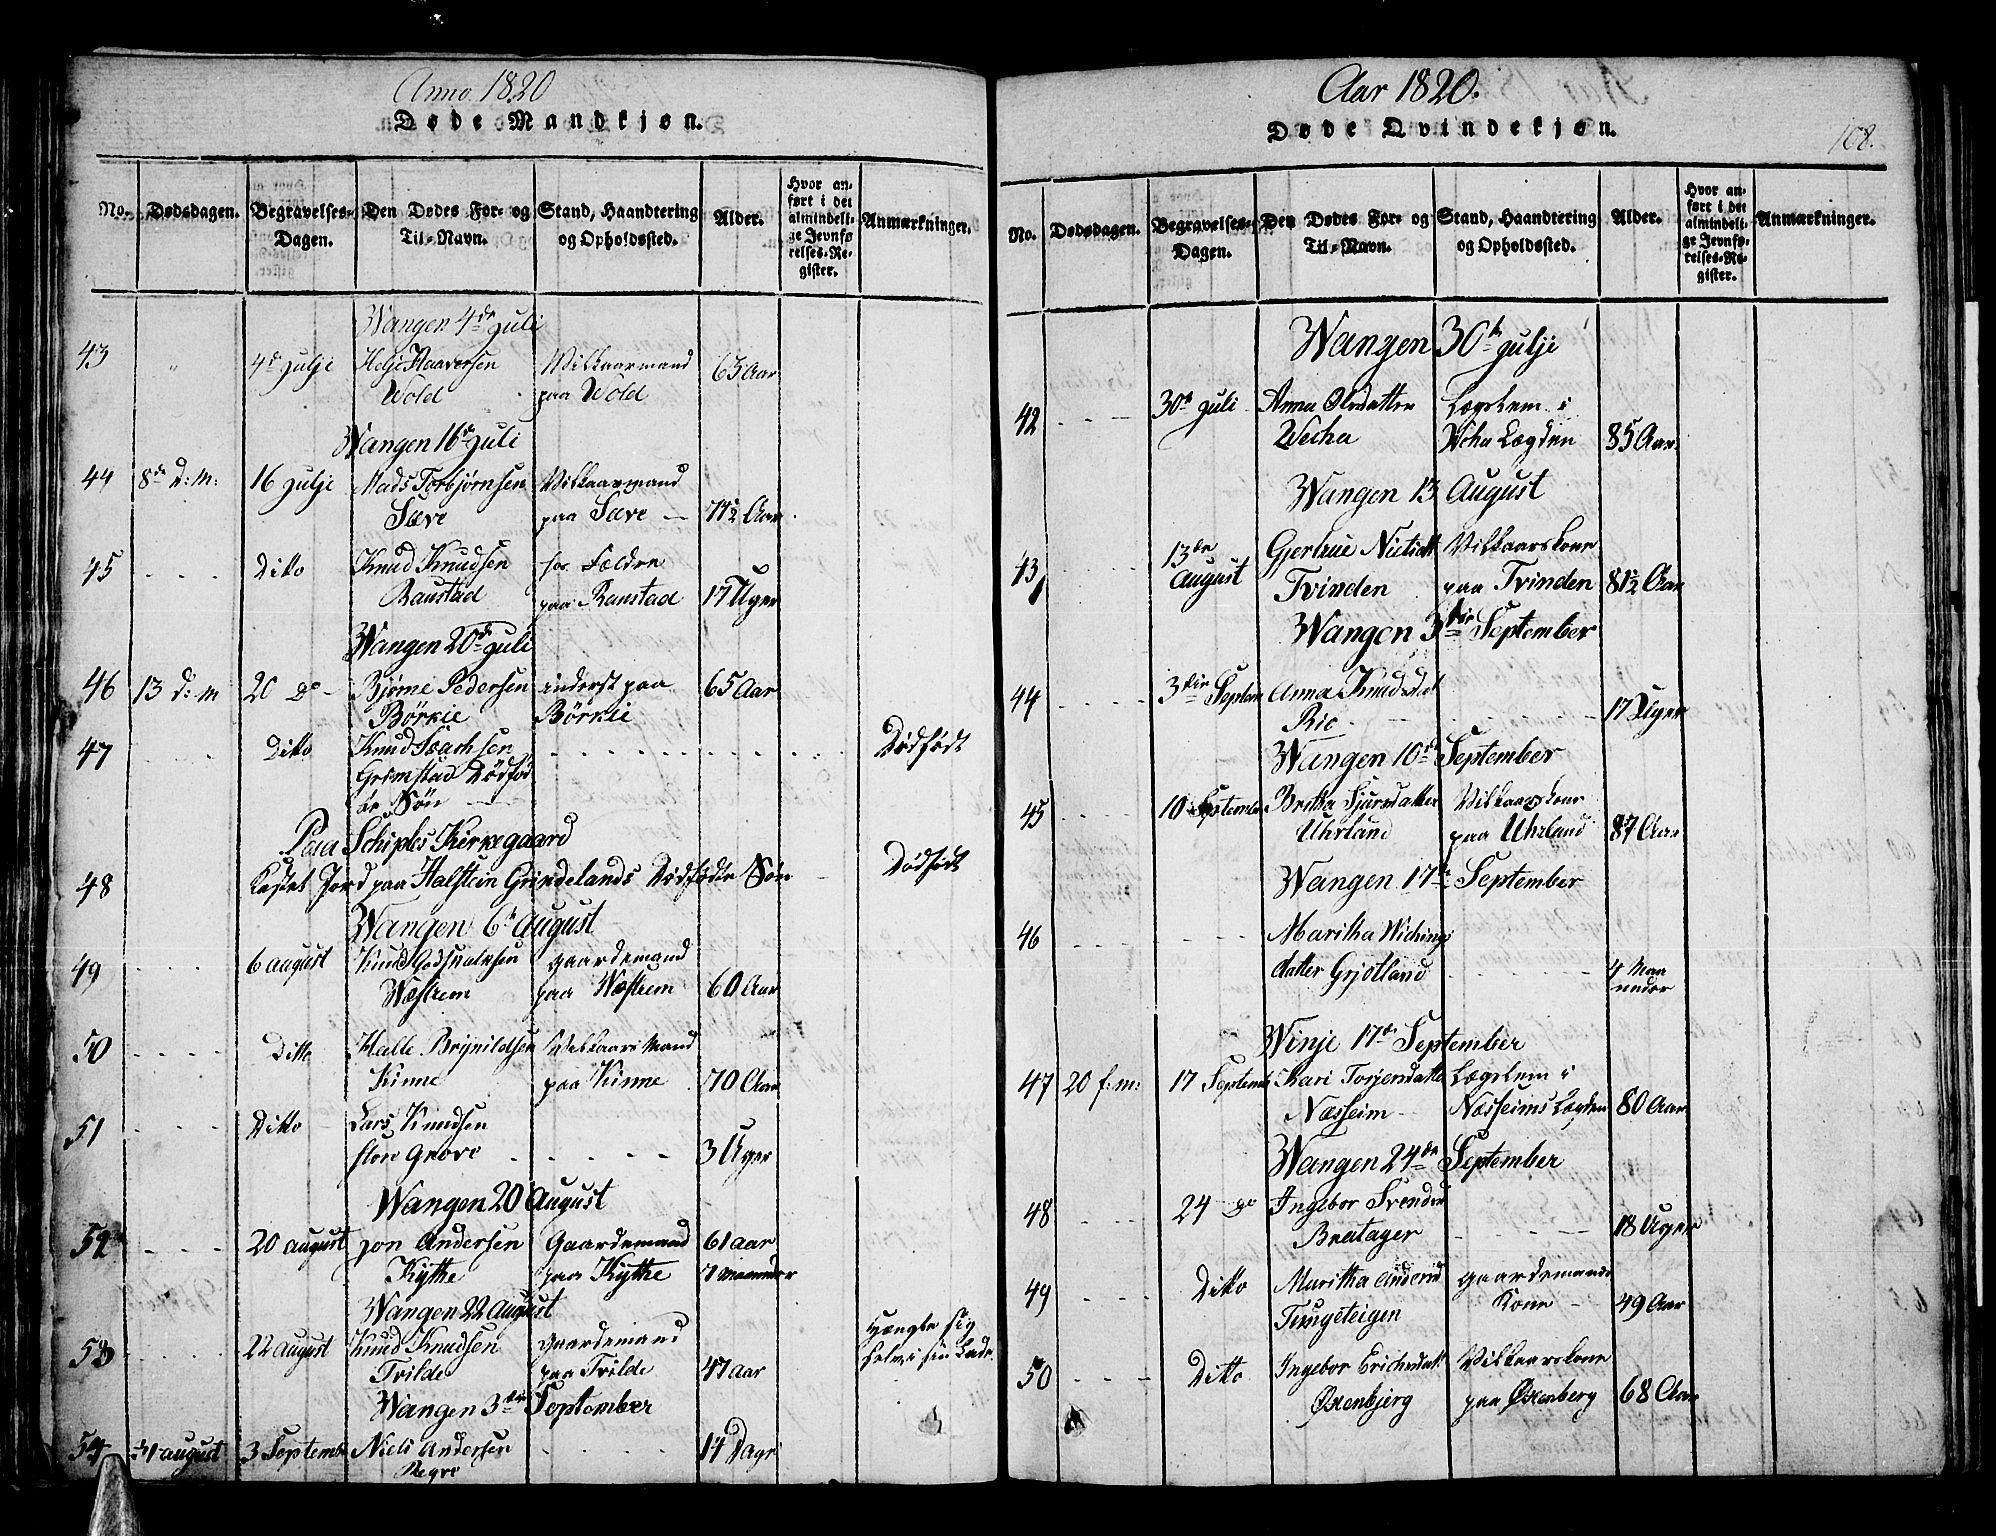 Anno 1820
Døde Mandkjøn.
No.
Dødsdagen.
Begravelses-
Dagen.
Den Dødes For- og
Til-Navn.
Stand, Haandtering
og Opholdssted.
Alder.
Hvor an-
ført i det
almindeli-
ge Jevnfø-
relses-Re-
gister.
Anmærkninger.
Wangen 4de Juli
43 4de Julje Helje Haaversen Vilkaarmand 63 Aar
Wold paa Wold
Wangen 16de Juli
44 8de D: M: 16 Julje Mads Torbjørnsen Vilkaarmand
Sæve paa Sæve 71½ Aar
45 Ditto Knud Knudsen for. Fældre
Raustad paa Raustad 17 Uger
Wangen 20de Juli
46 13 d: m 20 do Bjørne Pedersen inderst paa 65 Aar
Börkie Börkie
47 Ditto Knud Isachsen Dödfödt
Grimstad Dödföd
Sön
Paa Schiples Kirkegaard
48 Kastet Jord paa Halstein Grindelands Dödfödte Sön Dödfödt
Wangen 6te August
49 6 August Knud Godskalksen Gaardemand
Wæstrem paa Wæstrem 60 Aar
50 Ditto Halle Brynildsen Vilkaars Mand
Kinne paa Kinne 70 Aar
51 Ditto Lars Knudsen
Store Grove 3 Uger
Wangen 20 August
52 20 August Jon Andersen Gaardemand 61 Aar
Kythe paa Kythe 7 Maaneder
Wangen 22 August
53 22 August Knud Knudsen Gaardemand Hængte sig
Tvilde paa Tvilde 47 Aar selv i sin Lade
Wangen 3die September
54 31 August 3 Septembr Niels Andersen 14 Dage
Regve
Aar 1820.
Døde Qvindekjøn.
108.
No.
Dødsdagen.
Begravelses-
Dagen.
Den Dødes For- og
Til-Navn.
Stand, Haandtering
og Opholdssted.
Alder.
Hvor an-
ført i det
almindeli-
ge Jevnfø-
relses-Re-
gister.
Anmærkninger.
Wangen 30te Julje
42 30te Juli Anna Olsdatter Lægslem i
Wecha Wcha Lægden 85 Aar
Wangen 13 August
43 13de Gjertrue Nielsdtt Vilkaarskone
August Tvinden paa Tvinden 81½ Aar
Wangen 3die September
44 3die Septem Anna Knudsdat
Rio 17 Uger
Wangen 10de September
45 10 September Britha Sjursdatter Vilkaarskone
Uhrland paa Uhrland 87 Aar
Wangen 17de September
46 Maritha Wichings
datter Grjotland 4 Maa
neder
Winje 17de September
47 20 f: m: 17 Septemb Kari Torjersdatte Lægslem i
Næsheim Næsheims Lægden 80 Aar
Wangen 24de September
48 24 do Ingebor Svendsd
Bratager 18 Uger
49 Ditto Maritha Andersd Gaardemands
Tungeteigen Kone 49 Aar
50 Ditto Ingebor Erichsdatt Vilkaarskone
Øxenbjerg paa Øxenberg 68 Aar